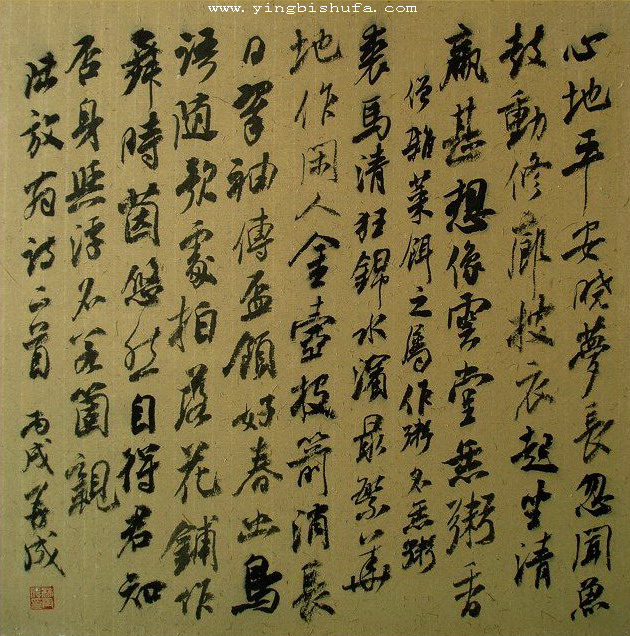 www.yingbishufa.com
心地平安晓夢長忽聞魚
鼓動修廊披衣起坐清
羸甚想像雲堂缹粥香
僧雜菜餌之屬作粥名缹粥
裘馬清狂錦水濱最繁華
地作閑人金壺投箭消長
日翠袖傳盃領好春幽鳥
語隨歌處拍落花鋪作
舞時茵悠然自得君知
否身與浮名若箇親
陸放翁詩二首 丙戌 成